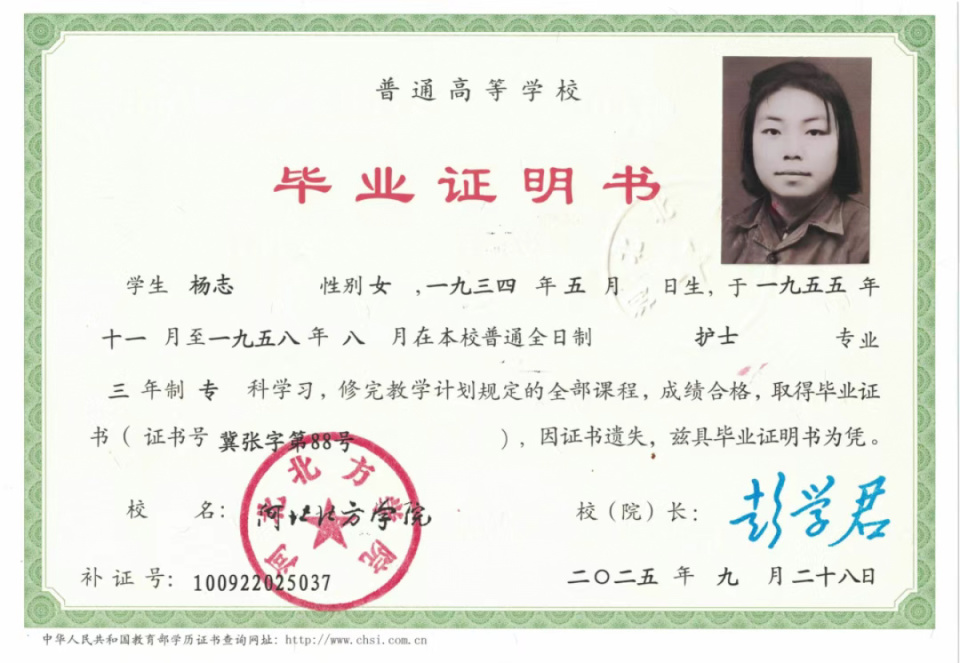 普通高等学校
毕业证明书
学生 杨志 性别 女 ,一九三四 年 五 月 日生, 于 一九五五 年
十一 月至 一九五八 年 八 月在本校普通全日制 护士 专业
三 年制 专 科学习, 修完教学计划规定的全部课程, 成绩合格, 取得毕业证
书( 证书号 冀张字第88号 ), 因证书遗失, 兹具毕业证明书为凭。
校 名: 河北北方学院 校(院)长: 彭学君
河北北方学院
补证号: 100922025037 二〇二五 年 九 月 二十八日
中华人民共和国教育部学历证书查询网址: http://www.chsi.com.cn